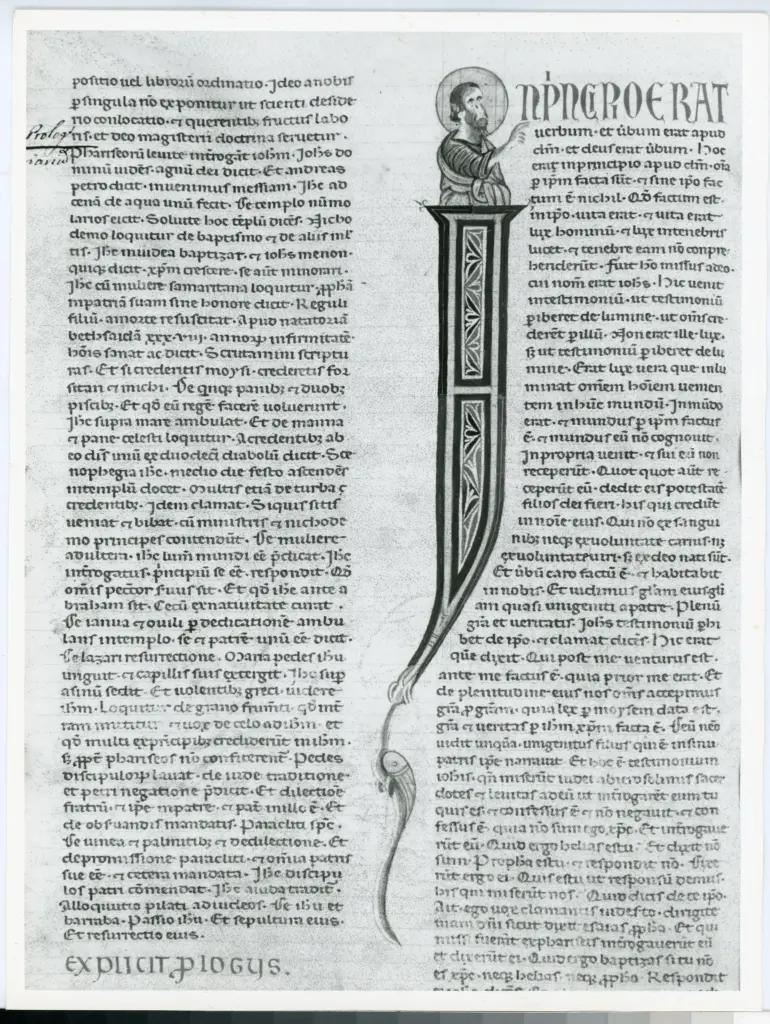 positio uel librorū ordinatio · Ideo a nobis
ꝑ singula nō exponitur ut scienti deside
rio conlocatio · ⁊ querentibꝫ fructus labo
ris · et deo magisterii doctrina seruetur ·
Prolog
Phariseorū leuite int̄rogāt ioħm · Joħs do
minū uidēs · agnū dei dicit · Et andreas
petro dicit · inuenimus messiam · Iħc ad
cenā de aqua unū fecit · De templo nūmo
larios eicit · Soluite hoc tēplū dicēs · Nicho
demo loquitur de baptismo ⁊ de aliis ml̄
tis · Iħc in iudea baptizat · ⁊ ioħs menon ·
quiqꝫ dicit · xp̄m crescere · se aūt minorari ·
Iħc cū muliere samaritana loquitur · ꝓphā
in patriā suam sine honore dicit · Reguli
filiū · a morte resuscitat · Apud natatoriā
bethsaidā xxx · viii · annoꝝ infirmitate
hōis sanat ac dicit · Scrutamini scriptu
ras · Et si crederitis moysi · crederetis for
sitan ⁊ michi · De qinqꝫ panibꝫ ⁊ duobꝫ
piscibꝫ · Et qđ eū regē facere uoluerunt ·
Iħc supra mare ambulat · Et de manna
⁊ pane celesti loquitur · A credentibꝫ ab
eo dīs unū ex duodecī diabolū dicit · Sce
nophegia iħc · medio die festo ascendēs
in templū docet · Multis etiā de turba ę
credentibꝫ · Idem clamat · Si quis sitit
ueniat ⁊ bibat · cū ministris ⁊ nichode
mo principes contendūt · De muliere
adultera · iħc lum̄ mundi eē p̄dicat · Iħc
int̄rogatus · p̄ncipiū se eē · respondit · Qđ
om̄is peccōr seruus sit · Et qđ iħc ante a
braham sit · Cecū ex natiuitate curat ·
De ianua ⁊ ouili ꝑ dedicatione ambu
lans in templo · se ⁊ patrē unū eē dicit ·
De lazari resurrectione · Maria pedes iħu
unguit · ⁊ capillis suis extergit · Iħc sup̄
asinū sedit · Et uolentibꝫ greci uidere
iħm · Loquitur de grano frumti · qđ int̄
ram mittitur · ⁊ uox de celo ad iħm · et
qđ multi ex p̄ncipibꝫ crediderūt in iħm ·
ꝫ ꝓpt̄ phariseos nō confiterent̄ · Pedes
discipuloꝝ lauat · de iude traditione
et petri negatione p̄dicit · Et dilectioē
fratrū · ⁊ ip̄e in patre · ⁊ pat̄ in illo ē · Et
de obseruandis mandatis · Paracliti sp̄c ·
De uinea ⁊ palmitibꝫ ⁊ de dilectione · Et
de promissione paracliti · ⁊ omnia patris
sue eē · ⁊ cetera mandata · Iħc discipu
los patri cōmendat · Iħc a iuda tradit̄ ·
Alloquutio pilati ad iudeos · De iħu et
barraba · Passio iħu · Et sepultura eius ·
Et resurrectio eius ·
EXPLICIT ꝒLOGUS ·
N PͥNCIPIO ERAT
uerbum · et ūbum erat apud
dm̄ · et deus erat ūbum · Hoc
erat in principio apud dm̄ · oīa
ꝑ ip̄m facta sūt · ⁊ sine ip̄o fac
tum ē nichil · Qđ factum est ·
in ip̄o · uita erat · ⁊ uita erat
lux hominū · ⁊ lux in tenebris
lucet · ⁊ tenebre eam nō conpre
henderūt · Fuit hō missus a deo ·
cui nom̄ erat ioħs · Hic uenit
in testimoniū · ut testimoniū
ꝑhiberet de lumine · ut om̄s cre
derēt ꝑ illū · Non erat ille lux ·
ꝫ ut testimoniū ꝑhiberet de lu
mine · Erat lux uera que inlu
minat om̄em hoīem uenien
tem in hūc mundū · In mūdo
erat · ⁊ mundus ꝑ ip̄m factus
ē · ⁊ mundus eū nō cognouit ·
In propria uenit · ⁊ sui eū non
receperūt · Quot quot aūt re
ceperūt eū · dedit eis potestatē
filios dei fieri · his qui credūt
in noīe eius · Qui nō ex sangui
nibꝫ neqꝫ ex uoluntate carnis · nqꝫ
ex uoluntate uiri · ꝫ ex deo nati sūt ·
Et ūbū caro factū ē · ⁊ habitabit
in nobis · Et uidimus gl̄am eius gl̄i
am quasi unigeniti a patre · Plenū
grā et ueritatis · Joħs testimoniū ꝑhi
bet de ip̄o · ⁊ clamat dicēs · Hic erat
quē dixit · Qui post me uenturus est ·
ante me factus ē · quia prior me erat · Et
de plenitudine eius nos om̄s accepimus
grā ꝓ gram · quia lex ꝑ moysem data est ·
grā ⁊ ueritas ꝑ iħm xp̄m facta ē · Deū nēo
uidit unquā · unigenitus filius qui ē in sinu
patris ip̄e narrauit · Et hoc ē testimonium
iohis · qn̄ miserūt iudei ab ierosolimis sacer
dotes ⁊ leuitas ad eū ut int̄rogarēt eum tu
quis es · ⁊ confessus ē ⁊ nō negauit · ⁊ con
fessus ē · quia nō sum ego xp̄c · Et int̄rogaue
rūt eū · Quid ergo helias es tu · Et dixit nō
sum · Propheta es tu · ⁊ respondit nō · Dixe
rūt ergo ei · Quis es tu ut responsū demus ·
his qui miserūt nos · Quid dicis de te ip̄o ·
Ait · ego uox clamantis in deserto · dirigite
uiam dn̄i sicut dixit esaias ꝓpha · Et qui
missi fuerāt ex phariseis int̄rogauerūt eū
et dixerūt ei · Quid ergo baptizas si tu nō
es xp̄c · neqꝫ helias · neqꝫ ꝓpha · Respondit